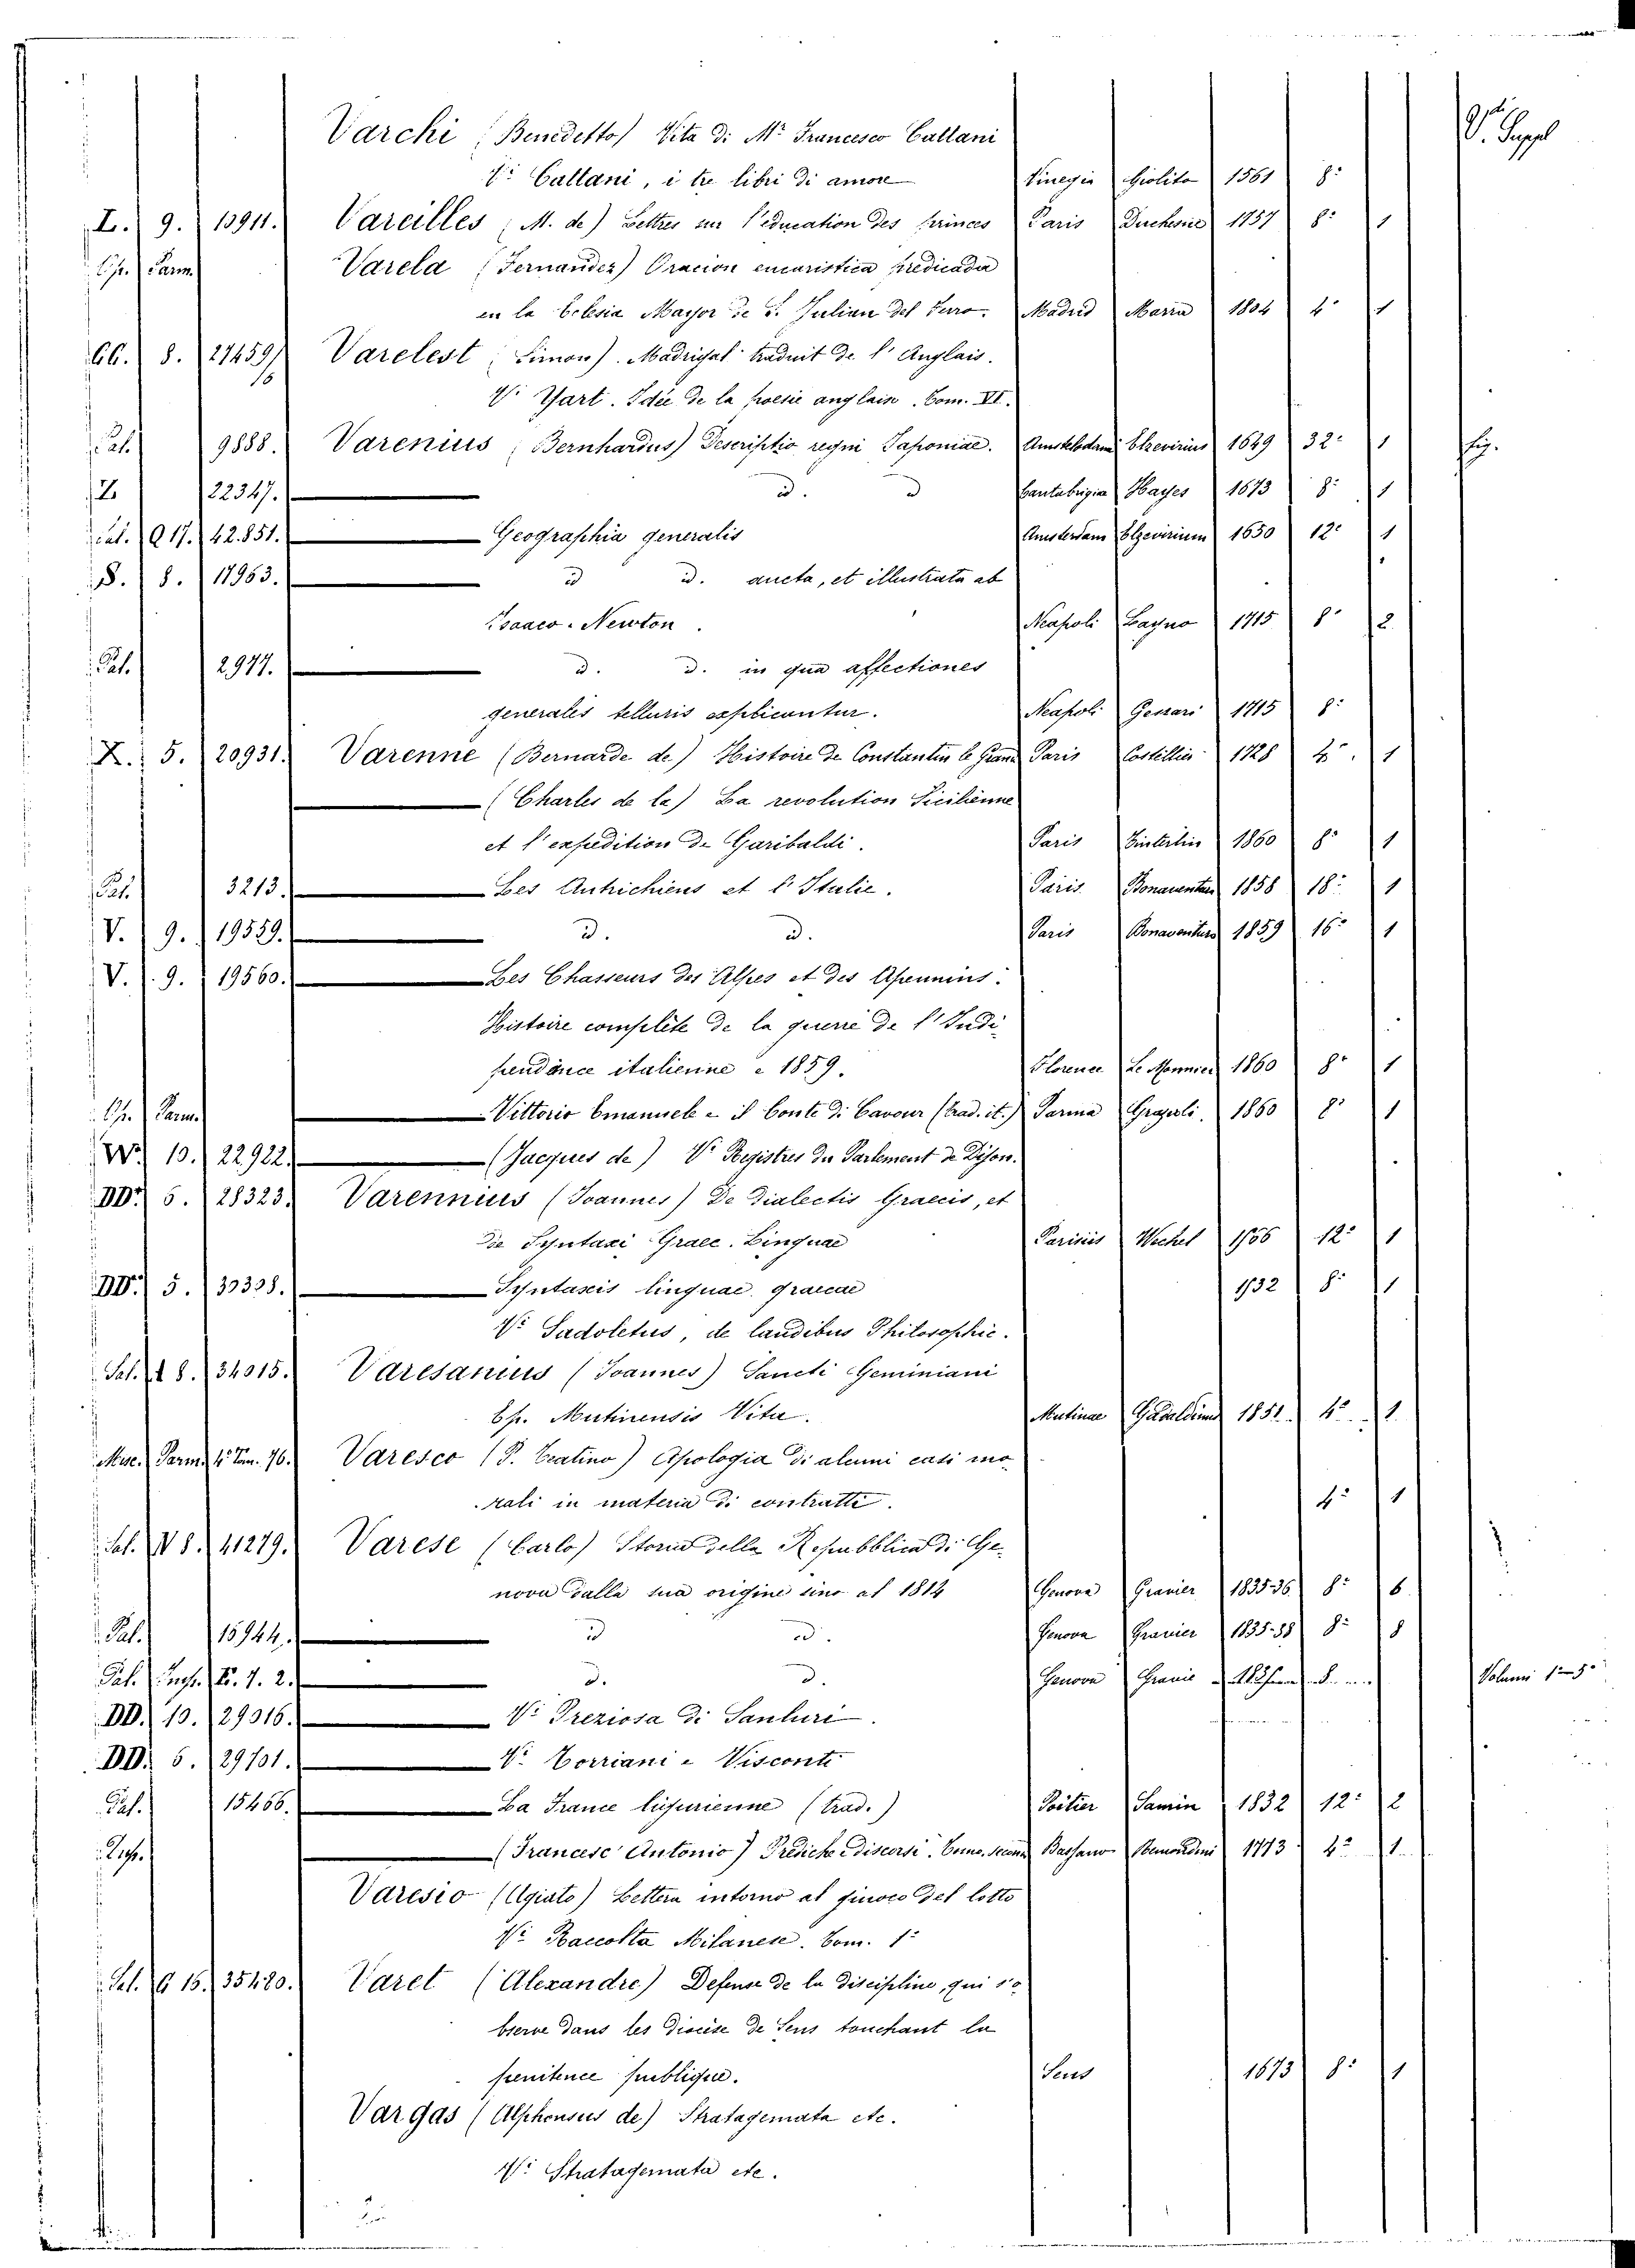 Varchi (Benedetto) Vita di Mr Francesco Cattani V. Suppl
Vi Cattani, i tre libri di amore Vinegia Giolito 1561 8:
I. 9. 10911. Vareilles (M. de) Lettres sur l'education des princes Paris Duchesne 1757 8: 1
Op. Parm. Varela (Fernandez) Oracion eucaristica predicada
en la Eclesia Mayor de S. Julian del Furo. Madrid Marin 1804 4: 1
CC. 8. 27459/16 Varelest (Simon). Madrigal traduit de l'Anglais.
Vi Yart. Idée de la poesie anglaise. Tom. VI.
Pal. 9888. Varenius (Bernhardus) Descriptio regni Japoniae. Amstelodami Elzevirius 1649 32: 1 fig.
Z. 22347. d. d Cantabrigia Hayes 1673 8: 1
Sal. Q 17. 42.851. Geographia generalis Amsterdam Elzevirium 1650 12: 1
S. 8. 17953. d d. aucta, et illustrata ab
Isaaco. Newton. Neapoli Cayno 1715 8: 2
Pal. 2977. d. d. in qua affectiones
generales telluris explicantur. Neapoli Gessari 1715 8:
X. 5. 20931. Varenne (Bernarde de) Histoire de Constantin le Grand Paris Costellier 1728 4: 1
(Charles de la) La revolution Sicilienne
et l'expedition de Garibaldi. Paris 1860 8: 1
Pal. 3213. Les Autrichiens et l'Italie. Paris Bonaventure 1858 18: 1
V. 9. 19559. d. d. Paris Bonaventure 1859 16: 1
V. 9. 19560. Les Chasseurs des Alpes et des Apennins.
Histoire complète de la guerre de l'Indi-
pendance italienne e 1859. Florence Le Monnier 1860 8: 1
Op. Parm. Vittorio Emanuele e il Conte di Cavour (trad. it.) Parma Grazioli. 1860 8: 1
W. 10. 22.922. (Jacques de) Vi Registres du Parlement de Dijon.
DD. 5. 28323. Varennius (Joannes) De dialectis Graecis, et
De Syntaxi Graec. Linguae Parisiis Wechel 1536 12: 1
DD. 5. 30308. Syntaxis linguae graecae 1532 8: 1
Vi Sadoletus, de laudibus Philosophie.
Sal. I 8. 34015. Varesanius (Joannes) Sancti Geminiani
Ep. Mutinensis Vita. Mutinae Gadaldinus 1551. 4: 1
Misc. Parm. 4: Tom. 76. Varesco (P. Teatino) Apologia di alcuni casi mo-
rali in materia di contratti. 4: 1
Sal. V 8. 41279. Varese (Carlo) Storia della Repubblica di Ge-
nova dalla sua origine sino al 1814 Genova Gravier 1835-36 8: 6
Pal. 15944. d d. Genova Gravier 1835-38 8: 8
Pal. d. d. Genova Volumi 1-5:
DD. 10. 29016. Vi Preziosa di Sanluri.
DD. 5. 29701. Vi Torriani e Visconti
Pal. 15466. La France ligurienne (trad.) Poitier Samin 1832 12: 2
(Francesc'Antonio) Prediche e discorsi. Bassano Remondini 1773 4: 1
Varesio (Agiato) Lettera intorno al giuoco del lotto
Vi Raccolta Milanese. Tom. 1:
Sal. G 15. 35420. Varet (Alexandre) Defense de la discipline, qui s'o-
bserve dans les diocése de Sens touchant la
penitence publique. Sens 1673 8: 1
Vargas (Alphonsus de) Stratagemata etc.
Vi Stratagemata etc.